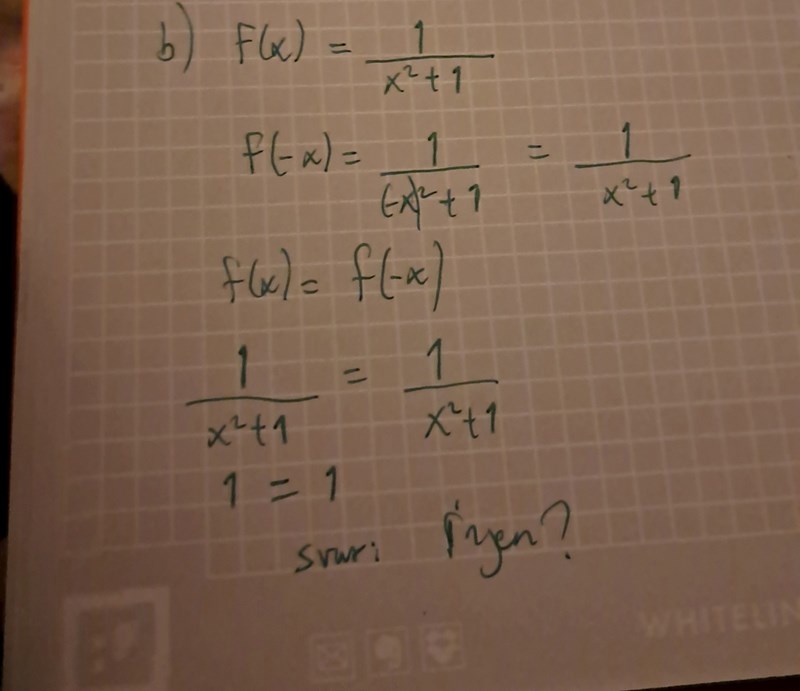 b) f(x) = 1/(x²+1)
f(-x) = 1/((-x)²+1) = 1/(x²+1)
f(x) = f(-x)
1/(x²+1) = 1/(x²+1)
1 = 1
svar: Ingen?
WHITELIN